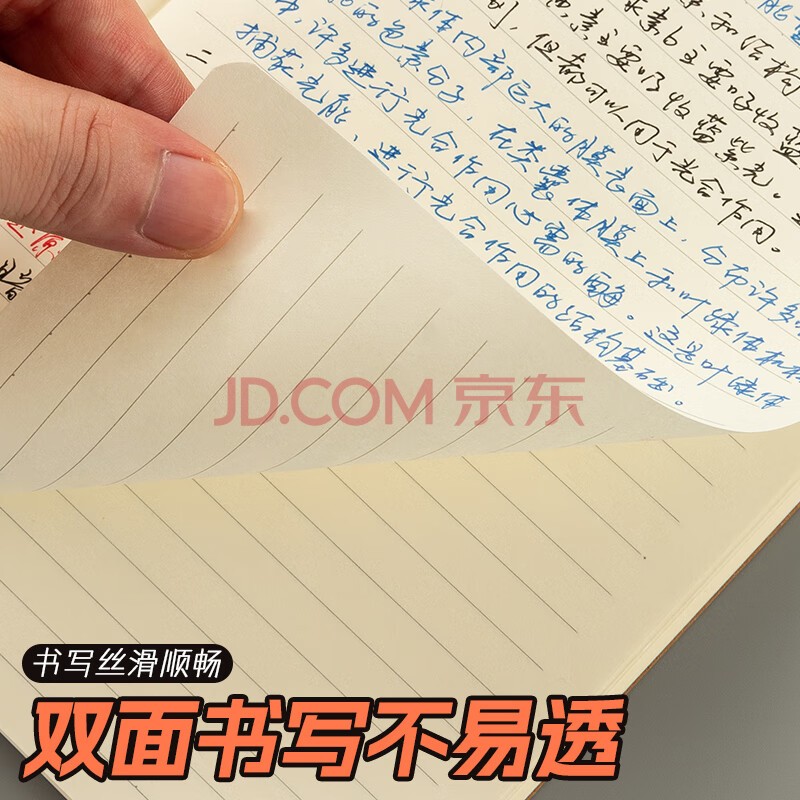 能量
和结构
素b主要吸收蓝
素主要吸收蓝紫光。
别,但都可以用于光合作用。
二
体内部巨大的膜表面上,分布许多
的色素分子,在类囊体膜上和叶绿体
中,许多进行光合作用必需的酶。这是叶绿体
捕获光能、进行光合作用的结构基础。
JD.COM 京东
书写丝滑顺畅
双面书写不易透